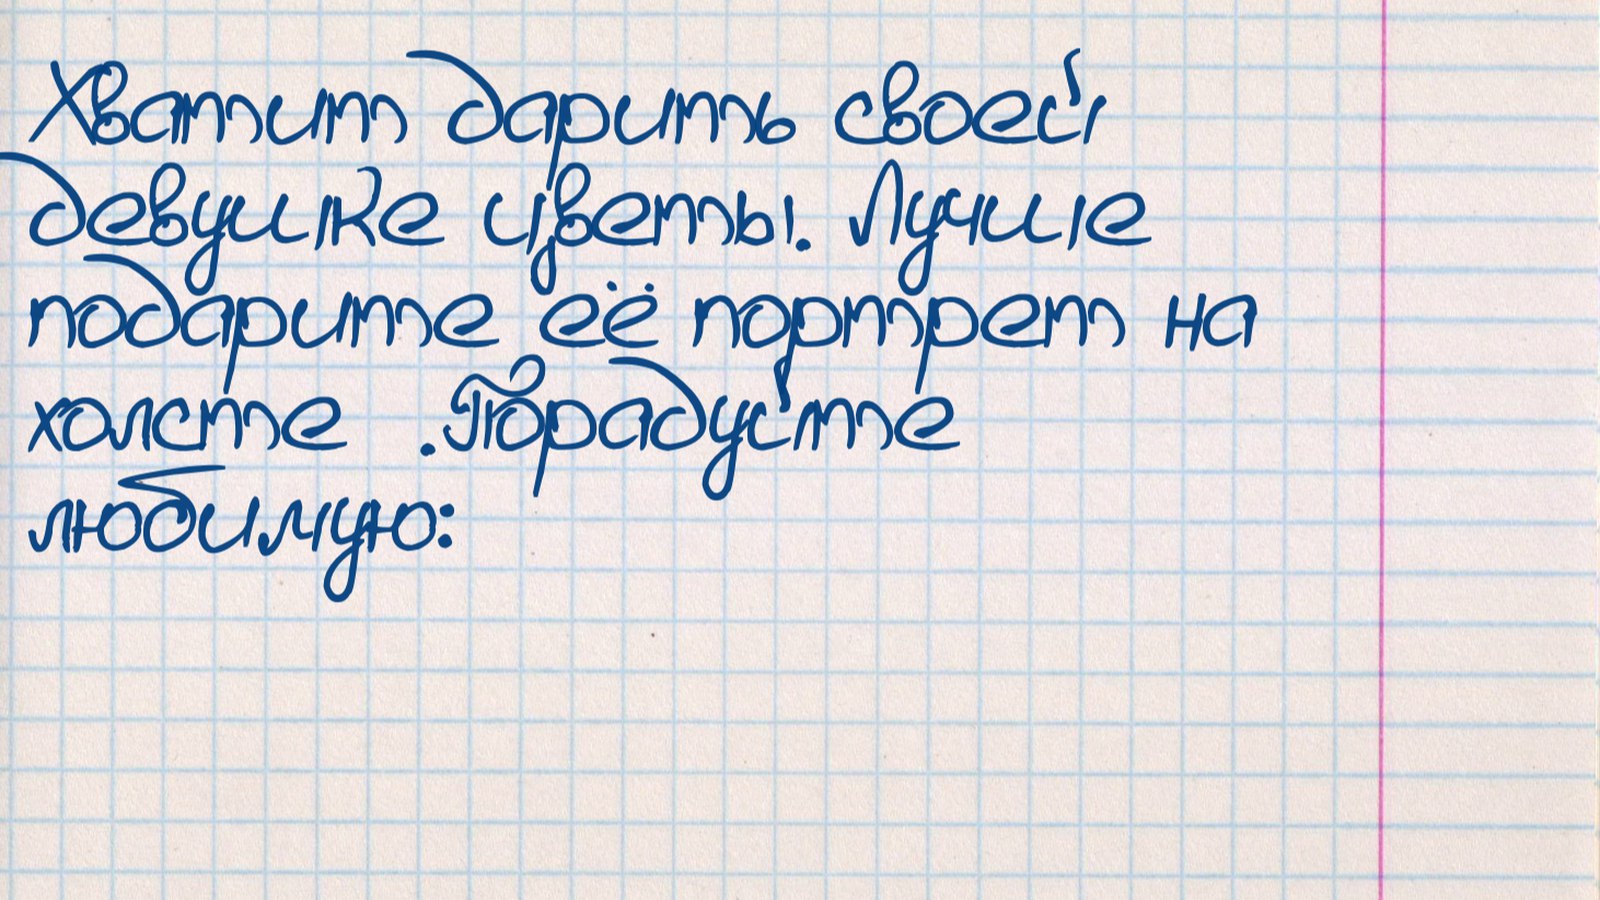 Хватит дарить своей
девушке цветы. Лучше
подарите её портрет на
холсте .Порадуйте
любимую: